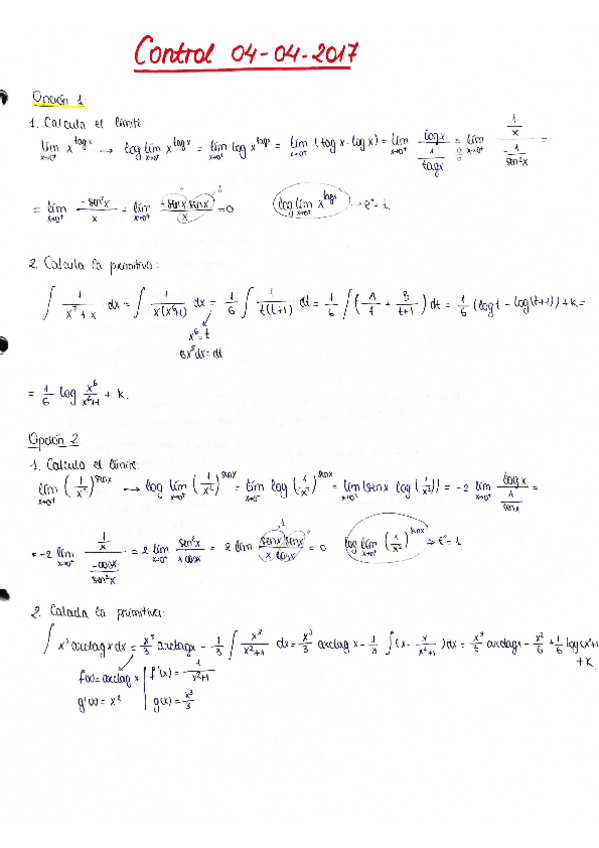 Control 04-04-2017
Opción 1:
1. Calcula el límite:
lím x→0⁺ x^{tag x} → log lím x→0⁺ x^{tag x} = lím x→0⁺ log x^{tag x} = lím x→0⁺ (tag x · log x) = lím x→0⁺ log x / (1/tag x) = lím x→0⁺ (1/x) / (-1/sen²x) =
= lím x→0⁺ -sen²x / x = lím x→0⁺ -senx senx / x = 0 log lím x→0⁺ x^{tag x} → e⁰ = 1
2. Calcula la primitiva:
∫ 1/(x⁷+x) dx = ∫ 1/(x(x⁶+1)) dx = 1/6 ∫ 1/(t(t+1)) dt = 1/6 ∫ (A/t + B/(t+1)) dt = 1/6 (log t - log(t+1)) + k =
x⁶ = t
6x⁵dx = dt
= 1/6 log x⁶/(x⁶+1) + k.
Opción 2
1. Calcula el límite:
lím x→0⁺ (1/x²)^{senx} → log lím x→0⁺ (1/x²)^{senx} = lím x→0⁺ log (1/x²)^{senx} = lím x→0⁺ (senx log (1/x²)) = -2 lím x→0⁺ log x / (1/senx) =
= -2 lím x→0⁺ (1/x) / (-cosx/sen²x) = 2 lím x→0⁺ sen²x / (x cosx) = 2 lím senx senx / (x cosx) = 0 log lím x→0⁺ (1/x²)^{senx} → e⁰ = 1
2. Calcula la primitiva:
∫ x² arctag x dx = x³/3 arctag x - 1/3 ∫ x³/(x²+1) dx = x³/3 arctag x - 1/3 ∫ (x - x/(x²+1)) dx = x³/3 arctag x - x²/6 + 1/6 log(x²+1
+ K
f(x) = arctag x f'(x) = 1/(x²+1)
g'(x) = x² g(x) = x³/3